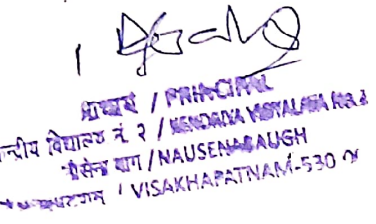 प्राचार्य / PRINCIPAL
केन्द्रीय विद्यालय नं. २ / KENDRIYA VIDYALAYA NO. 2
नौसेना बाग / NAUSENABAUGH
/ VISAKHAPATNAM-530